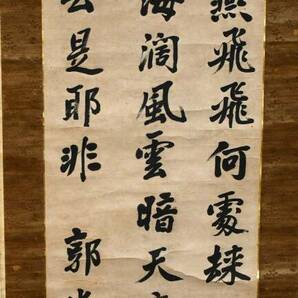 燕飛飛何處
海阔風雲暗天
是耶非 郭